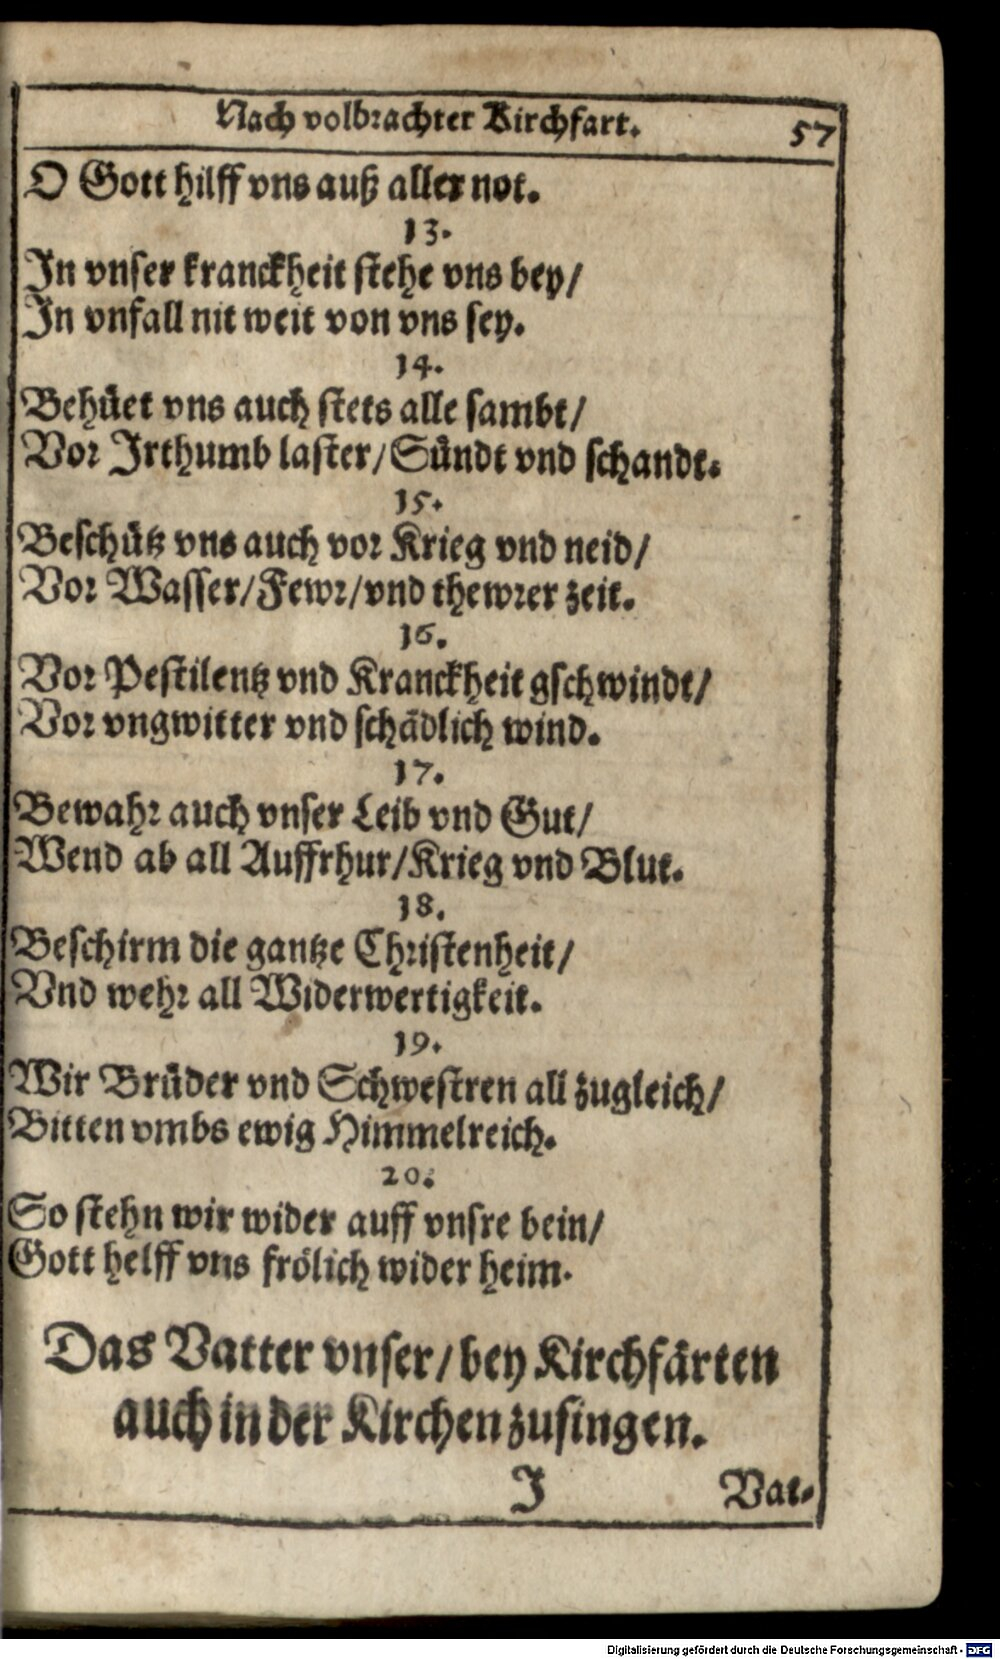 Nach volbrachter Kirchfart. 57
O Gott hilff vns auß aller not.
13.
In vnser kranckheit stehe vns bey/
In vnfall nit weit von vns sey.
14.
Behüet vns auch stets alle sambt/
Vor Irthumb laster/Sündt vnd schandt.
15.
Beschütz vns auch vor Krieg vnd neid/
Vor Wasser/Fewr/vnd thewrer zeit.
16.
Vor Pestilentz vnd Kranckheit gschwindt/
Vor vngwitter vnd schädlich wind.
17.
Bewahr auch vnser Leib vnd Gut/
Wend ab all Auffrhur/Krieg vnd Blut.
18.
Beschirm die gantze Christenheit/
Vnd wehr all Widerwertigkeit.
19.
Wir Brüder vnd Schwestren all zugleich/
Bitten vmbs ewig Himmelreich.
20.
So stehn wir wider auff vnsre bein/
Gott helff vns frölich wider heim.
Das Vatter vnser/bey Kirchfärten
auch in der Kirchen zusingen.
J Vat-
Digitalisierung gefördert durch die Deutsche Forschungsgemeinschaft - DFG